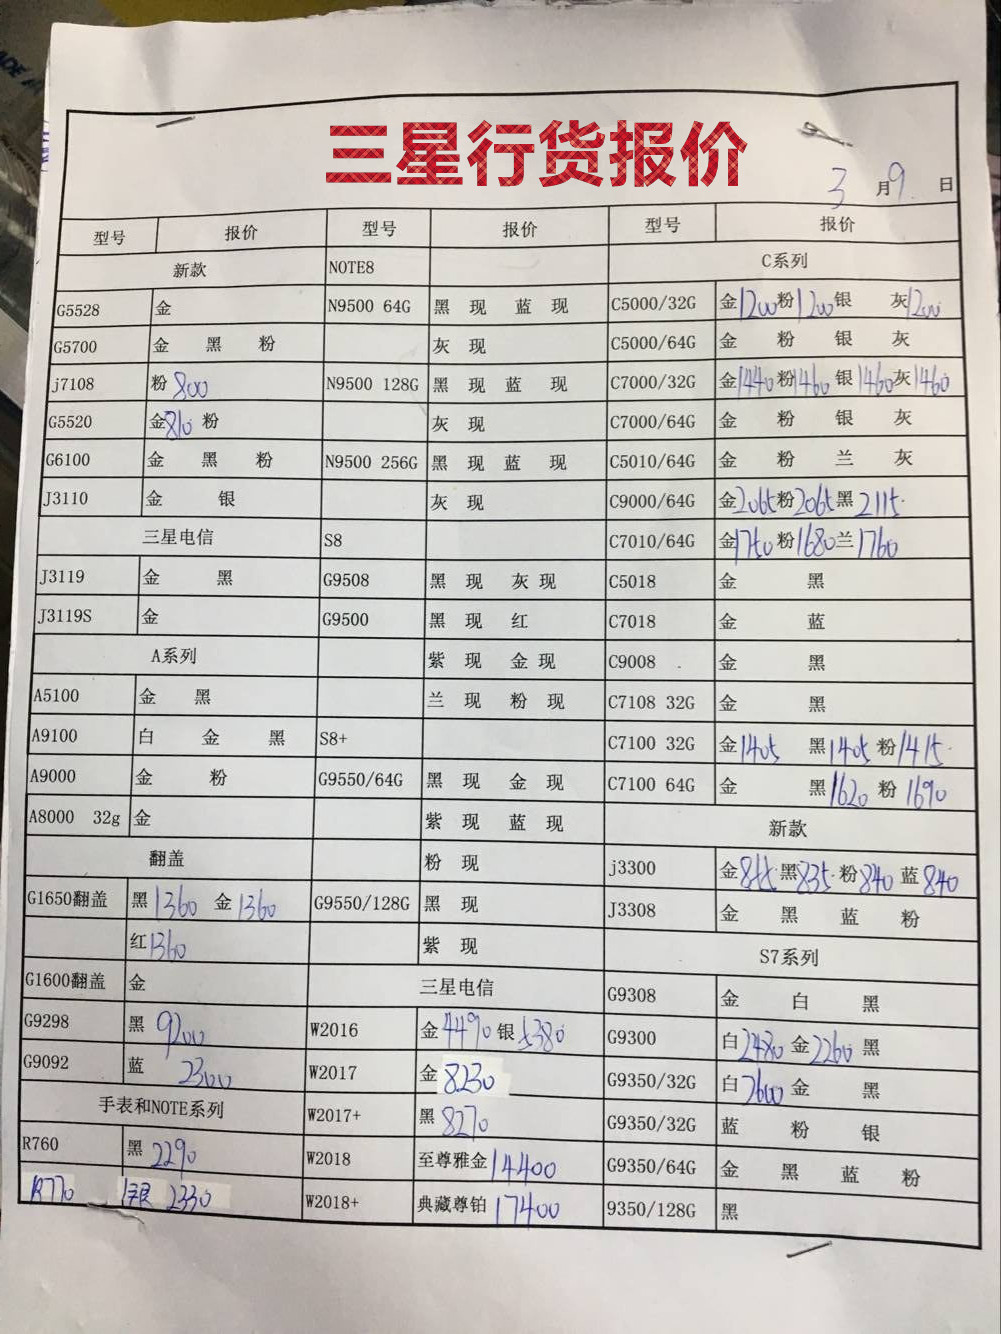 三星行货报价
3月9.日
型号 报价 型号 报价 型号 报价
新款 NOTE8 C系列
G5528 金 N9500 64G 黑 现 蓝 现 C5000/32G 金1200粉1200银 灰1200
G5700 金 黑 粉 灰 现 C5000/64G 金 粉 银 灰
j7108 粉800 N9500 128G 黑 现 蓝 现 C7000/32G 金1440粉1460银1460灰1460
G5520 金810粉 灰 现 C7000/64G 金 粉 银 灰
G6100 金 黑 粉 N9500 256G 黑 现 蓝 现 C5010/64G 金 粉 兰 灰
J3110 金 银 灰 现 C9000/64G 金2065粉2065黑2115.
三星电信 S8 C7010/64G 金1750粉1680兰1760
J3119 金 黑 G9508 黑 现 灰 现 C5018 金 黑
J3119S 金 G9500 黑 现 红 C7018 金 蓝
A系列 紫 现 金 现 C9008 金 黑
A5100 金 黑 兰 现 粉 现 C7108 32G 金 黑
A9100 白 金 黑 S8+ C7100 32G 金1405 黑1405粉1415.
A9000 金 粉 G9550/64G 黑 现 金 现 C7100 64G 金 黑1620粉1690
A8000 32g 金 紫 现 蓝 现 新款
翻盖 粉 现 j3300 金 黑835.粉840蓝840
G1650翻盖 黑1360 金1360 G9550/128G 黑 现 J3308 金 黑 蓝 粉
红1360 紫 现 S7系列
G1600翻盖 金 三星电信 G9308 金 白 黑
G9298 黑9200 W2016 金4490银5380 G9300 白2480金2260黑
G9092 蓝2300 W2017 金8230 G9350/32G 白2600金 黑
手表和NOTE系列 W2017+ 黑8270 G9350/32G 蓝 粉 银
R760 黑2290 W2018 至尊雅金14400 G9350/64G 金 黑 蓝 粉
R770 银2330 W2018+ 典藏尊铂17400 9350/128G 黑